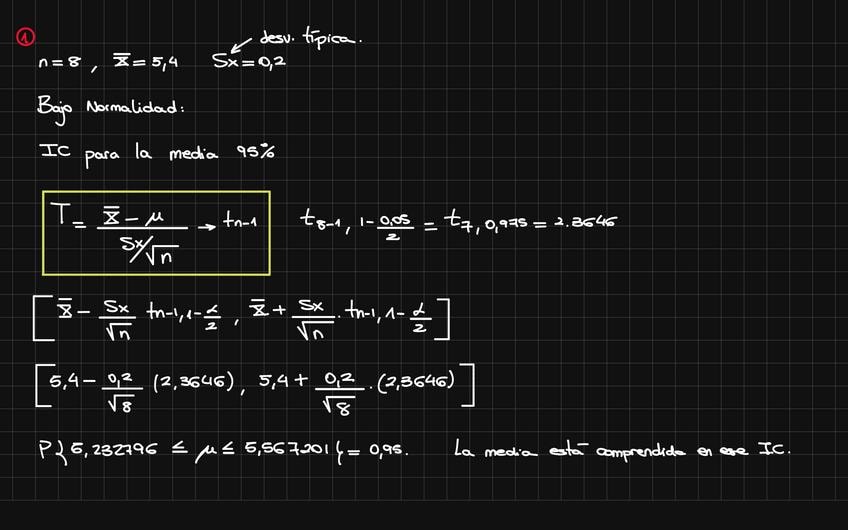 ①
desv. típica.
n=8 , x̄=5,4 Sx=0,2
Bajo Normalidad:
IC para la media 95%
T = (x̄ - μ) / (Sx/√n) → tn-1 t8-1, 1-0,05/2 = t7, 0,975 = 2.3646
[x̄ - Sx/√n tn-1,1-α/2 , x̄ + Sx/√n · tn-1, 1-α/2]
[5,4 - 0,2/√8 (2,3646), 5,4 + 0,2/√8 · (2,3646)]
P{5,232796 ≤ μ ≤ 5,567201} = 0,95. La media está comprendida en ese IC.